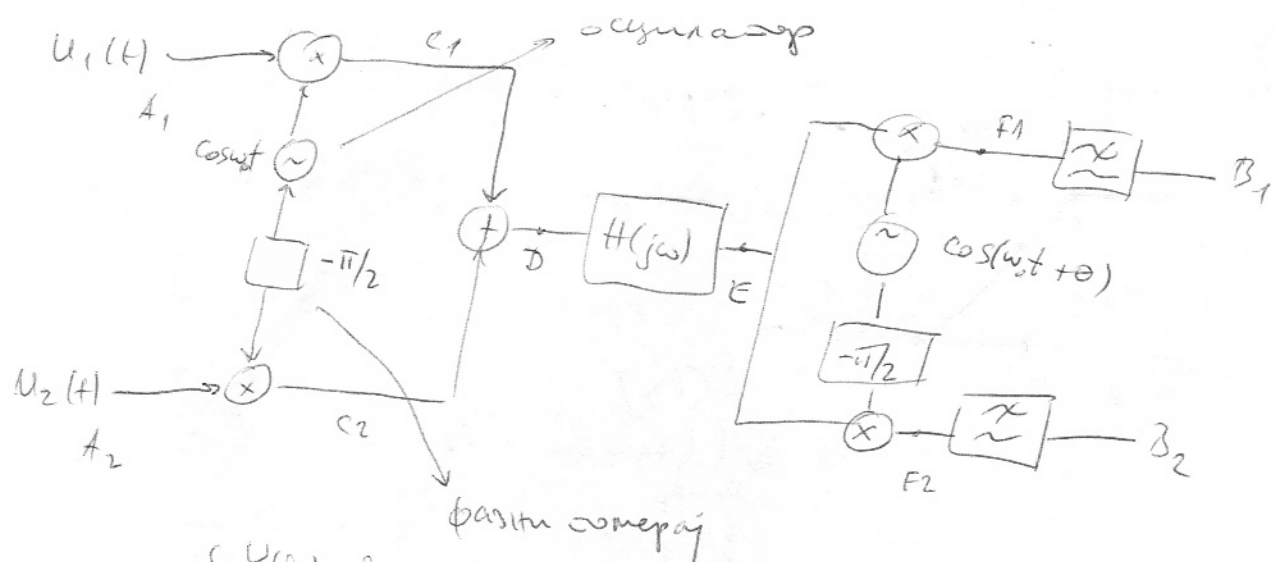 u₁(t)
A₁
x
C1
осцилатор
cosω₀t
~
-π/2
+
D
H(jω)
E
x
F1
B₁
~
cos(ω₀t+θ)
-π/2
u₂(t)
A₂
x
C2
x
F2
B₂
фазни померај